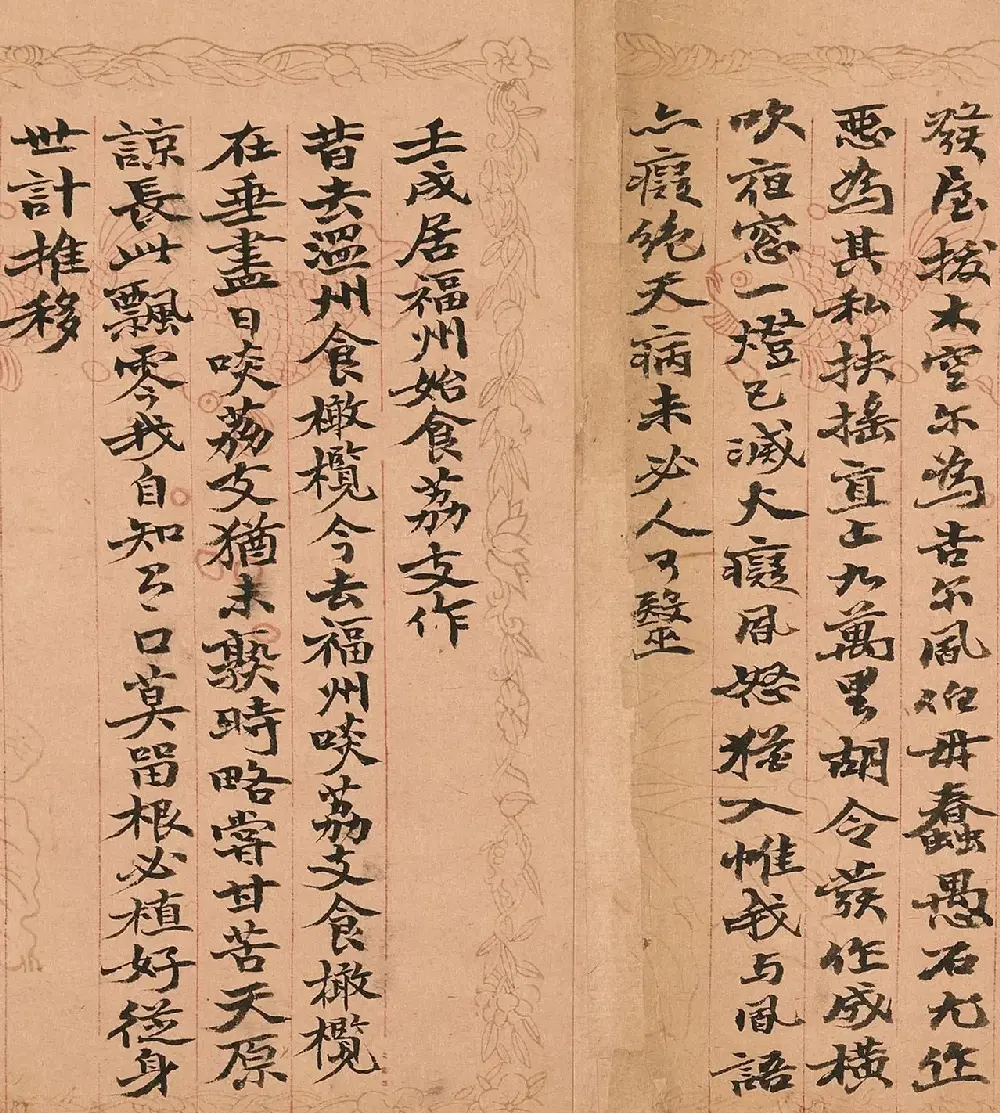 發屋拔木空尔為告尔風伯毋蠢愚石尤作
惡為其私扶搖直上九萬里胡令發作成橫
吹窓一燈已滅大癡風怒猶入帷我与風語
亦癡絶天病未必人可醫
壬戌居福州始食荔支作
昔去溫州食橄欖今去福州啖荔支食橄欖
在垂盡日啖荔支猶未熟時略嘗甘苦天原
諒長此飄零我自知口莫留根必植好從身
世計推移